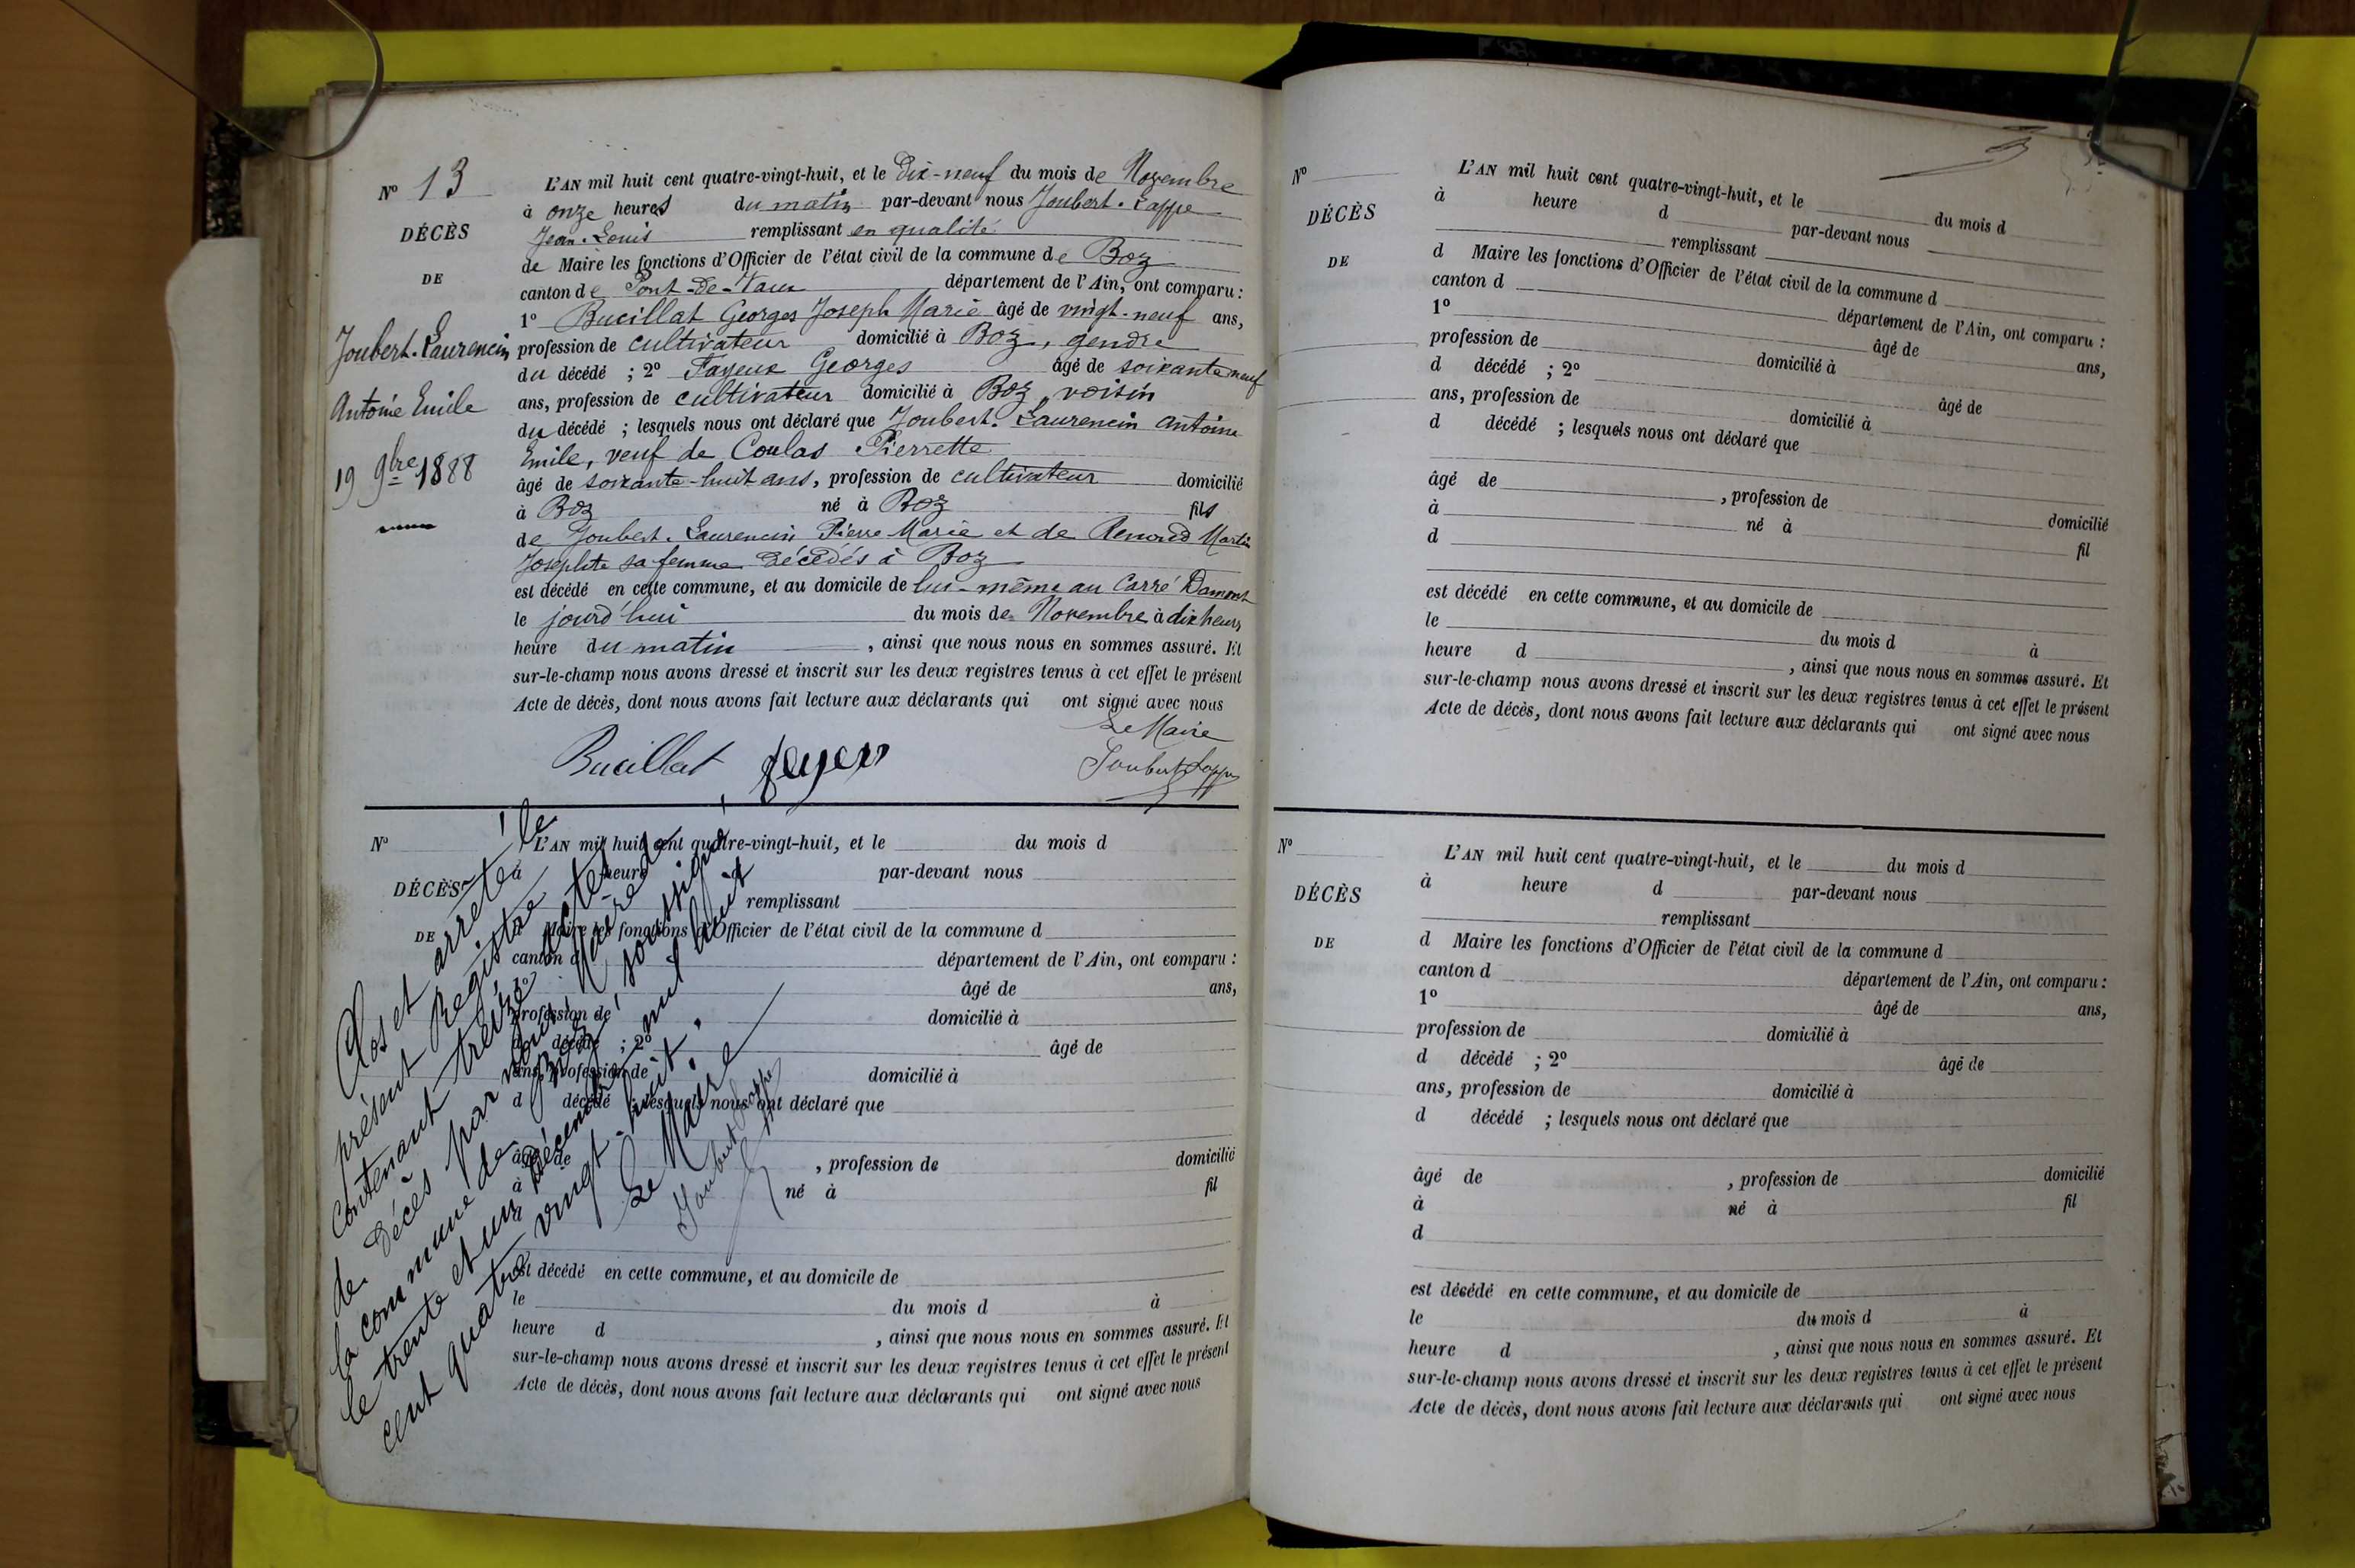 N° 13
DÉCÈS
DE
Joubert-Laurencin
Antoine Emile
19 9bre 1888
L'AN mil huit cent quatre-vingt-huit, et le Dix-neuf du mois de Novembre
à onze heures du matin par-devant nous Joubert-Lappe
Jean-Louis remplissant en qualité
de Maire les fonctions d'Officier de l'état civil de la commune de Boz
canton de Pont-de-Vaux département de l'Ain, ont comparu :
1° Bucillat Georges Joseph Marie âgé de vingt-neuf ans,
profession de cultivateur domicilié à Boz, gendre
du décédé ; 2° Fayeux Georges âgé de soixante neuf
ans, profession de cultivateur domicilié à Boz, voisin
du décédé ; lesquels nous ont déclaré que Joubert-Laurencin Antoine
Emile, veuf de Coulas Pierrette
âgé de soixante-huit ans, profession de cultivateur domicilié
à Boz né à Boz fils
de Joubert-Laurencin Pierre Marie et de Renoud Martin
Josephte sa femme décédés à Boz
est décédé en cette commune, et au domicile de lui-même au Carré Damont
le jourd'hui du mois de Novembre à dix heures
heure du matin, ainsi que nous nous en sommes assuré. Et
sur-le-champ nous avons dressé et inscrit sur les deux registres tenus à cet effet le présent
Acte de décès, dont nous avons fait lecture aux déclarants qui ont signé avec nous
Le Maire
Bucillat fayeux Joubert Lappe
N°
DÉCÈS
DE
L'AN mil huit cent quatre-vingt-huit, et le du mois d
à heure par-devant nous
remplissant
d Maire les fonctions d'Officier de l'état civil de la commune d
canton d département de l'Ain, ont comparu :
1° âgé de ans,
profession de domicilié à
d décédé ; 2° âgé de
ans, profession de domicilié à
d décédé ; lesquels nous ont déclaré que
âgé de , profession de domicilié
à né à fil
d
est décédé en cette commune, et au domicile de
le du mois d à
heure d , ainsi que nous nous en sommes assuré. Et
sur-le-champ nous avons dressé et inscrit sur les deux registres tenus à cet effet le présent
Acte de décès, dont nous avons fait lecture aux déclarants qui ont signé avec nous
Clos et arrêté le
présent Registre
contenant treize actes
de Décès par nous Maire de
la commune de Boz, soussigné
le trente et un Décembre mil huit
cent quatre vingt-huit.
Le Maire
Joubert Lappe
N°
DÉCÈS
DE
L'AN mil huit cent quatre-vingt-huit, et le du mois d
à heure d par-devant nous
remplissant
d Maire les fonctions d'Officier de l'état civil de la commune d
canton d département de l'Ain, ont comparu :
1° âgé de ans,
profession de domicilié à
d décédé ; 2° âgé de
ans, profession de domicilié à
d décédé ; lesquels nous ont déclaré que
âgé de , profession de domicilié
à né à fil
d
est décédé en cette commune, et au domicile de
le du mois d à
heure d , ainsi que nous nous en sommes assuré. Et
sur-le-champ nous avons dressé et inscrit sur les deux registres tenus à cet effet le présent
Acte de décès, dont nous avons fait lecture aux déclarants qui ont signé avec nous
N°
DÉCÈS
DE
L'AN mil huit cent quatre-vingt-huit, et le du mois d
à heure d par-devant nous
remplissant
d Maire les fonctions d'Officier de l'état civil de la commune d
canton d département de l'Ain, ont comparu :
1° âgé de ans,
profession de domicilié à
d décédé ; 2° âgé de
ans, profession de domicilié à
d décédé ; lesquels nous ont déclaré que
âgé de , profession de domicilié
à né à fil
d
est décédé en cette commune, et au domicile de
le du mois d à
heure d , ainsi que nous nous en sommes assuré. Et
sur-le-champ nous avons dressé et inscrit sur les deux registres tenus à cet effet le présent
Acte de décès, dont nous avons fait lecture aux déclarants qui ont signé avec nous